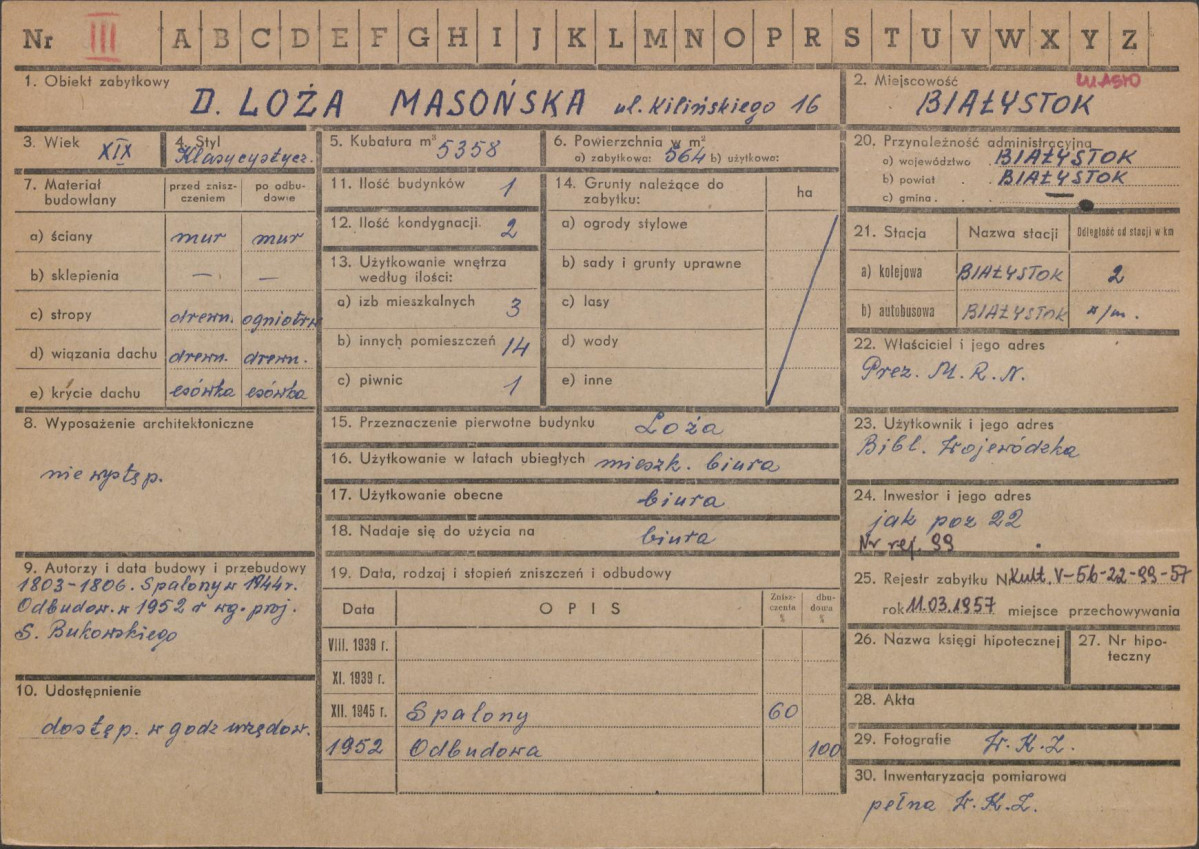 Nr III A B C D E F G H I J K L M N O P R S T U V W X Y Z
1. Obiekt zabytkowy
D. LOŻA MASOŃSKA ul. Kilińskiego 16
2. Miejscowość MIASTO
BIAŁYSTOK
3. Wiek XIX
4. Styl
Klasycystycz.
5. Kubatura m³ 5358
6. Powierzchnia w m²
a) zabytkowa: 564 b) użytkowa:
7. Materiał budowlany
przed zniszczeniem
po odbudowie
a) ściany mur mur
b) sklepienia — —
c) stropy drewn. ogniotrw
d) wiązania dachu drewn. drewn.
e) krycie dachu esówka esówka
8. Wyposażenie architektoniczne
nie występ.
9. Autorzy i data budowy i przebudowy
1803-1806. Spalony w 1944 r.
Odbudow. w 1952 r wg. proj.
S. Bukowskiego
10. Udostępnienie
dostęp. w godz urzędow.
11. Ilość budynków 1
12. Ilość kondygnacji. 2
13. Użytkowanie wnętrza
według ilości:
a) izb mieszkalnych 3
b) innych pomieszczeń 14
c) piwnic 1
14. Grunty należące do
zabytku:
ha
a) ogrody stylowe
b) sady i grunty uprawne
c) lasy
d) wody
e) inne
15. Przeznaczenie pierwotne budynku Loża
16. Użytkowanie w latach ubiegłych mieszk. biura
17. Użytkowanie obecne biura
18. Nadaje się do użycia na biura
19. Data, rodzaj i stopień zniszczeń i odbudowy
Data OPIS Zniszczenia % dbudowa %
VIII. 1939 r.
XI. 1939 r.
XII. 1945 r. Spalony 60
1952 Odbudowa 100
20. Przynależność administracyjna
a) województwo BIAŁYSTOK
b) powiat BIAŁYSTOK
c) gmina
21. Stacja Nazwa stacji Odległość od stacji w km
a) kolejowa BIAŁYSTOK 2
b) autobusowa BIAŁYSTOK n/m.
22. Właściciel i jego adres
Prez. M. R. N.
23. Użytkownik i jego adres
Bibl. Wojewódzka
24. Inwestor i jego adres
jak poz 22
Nr rej. 99
25. Rejestr zabytku Nr Kult. V-56-22-99-57
rok 11.03.1957 miejsce przechowywania
26. Nazwa księgi hipotecznej
27. Nr hipoteczny
28. Akta
29. Fotografie W. K. Z.
30. Inwentaryzacja pomiarowa
pełna W. K. Z.